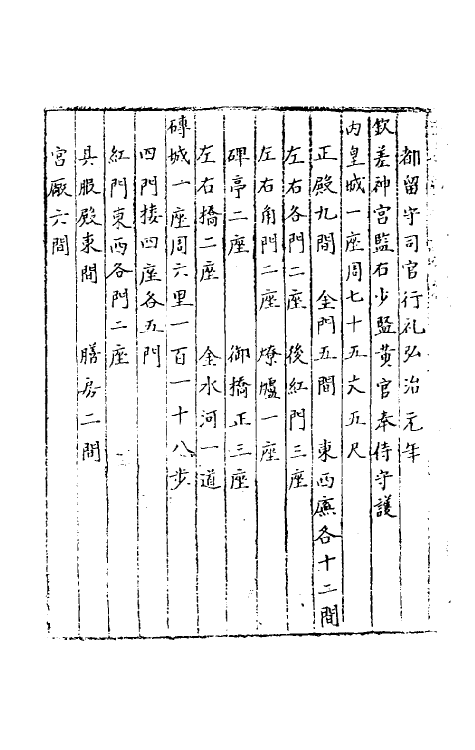 都留守司官行礼弘治元年
欽差神宮監右少監黄官奉侍守護
内皇城一座周七十五丈五尺
正殿九間　金門五間　東西廡各十二間
左右各門二座　後紅門三座
左右角門二座　燎爐一座
碑亭二座　御橋正三座
左右橋二座　金水河一道
磚城一座周六里一百一十八步
四門楼四座各五門
紅門東西各門二座
具服殿東間　膳房二間
宮厰六間